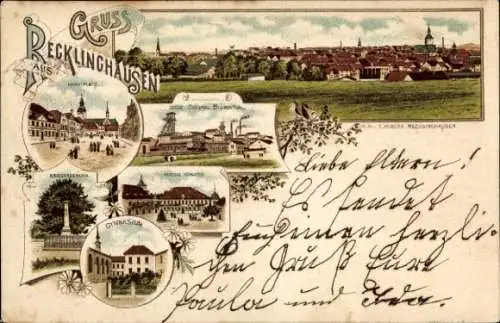 GRUSS
AUS
RECKLINGHAUSEN
MARKTPLATZ
ZECHE GENERAL BLUMENTHAL
KRIEGERDENKMAL
GYMNASIUM
RECKLINGHAUSEN
Liebe Eltern!
Es sendet
Euch einen herzli-
chen Gruß Eure
Paula und Ida.